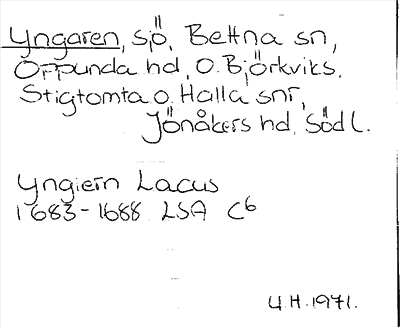 Yngaren, sjö, Bettna sn,
Oppunda hd, o. Björkviks,
Stigtomta o. Halla snr,
Jönåkers hd, Södl.
Yngiern Lacus
1683-1688 LSA C6
U.H. 1971.